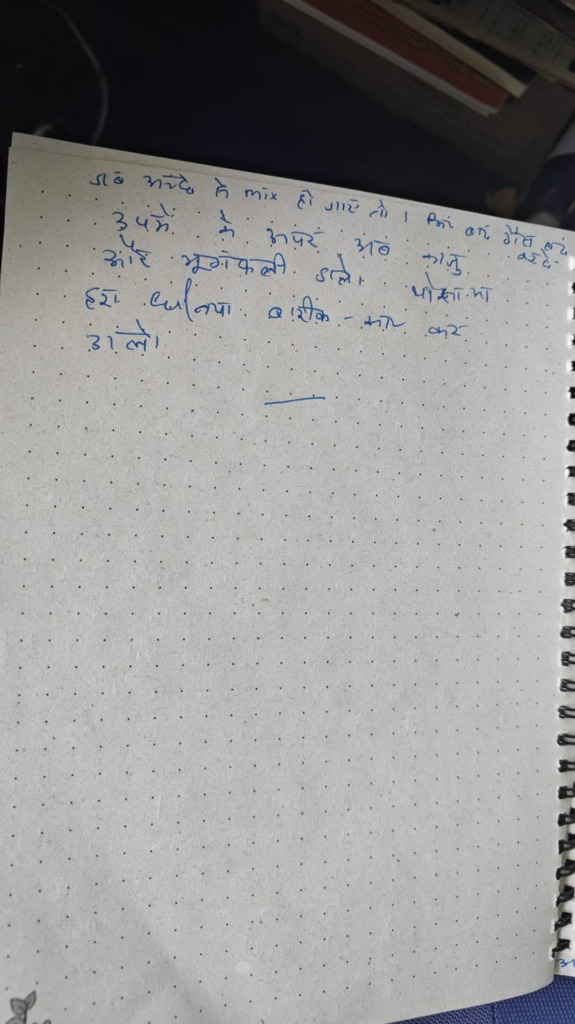 जब अच्छे से mix हो जाये तो । फिर बाद गैस बंद
करदे.
उपमें के ऊपर अब काजु
और मूगंफली डाले। थोडा सा
हरा धनिया बारीक - काट कर
डाले।